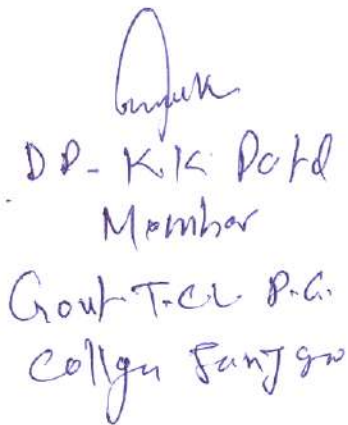 DP- K.K. Patel
Member
Govt. T.C.L. P.G.
College Janjgir